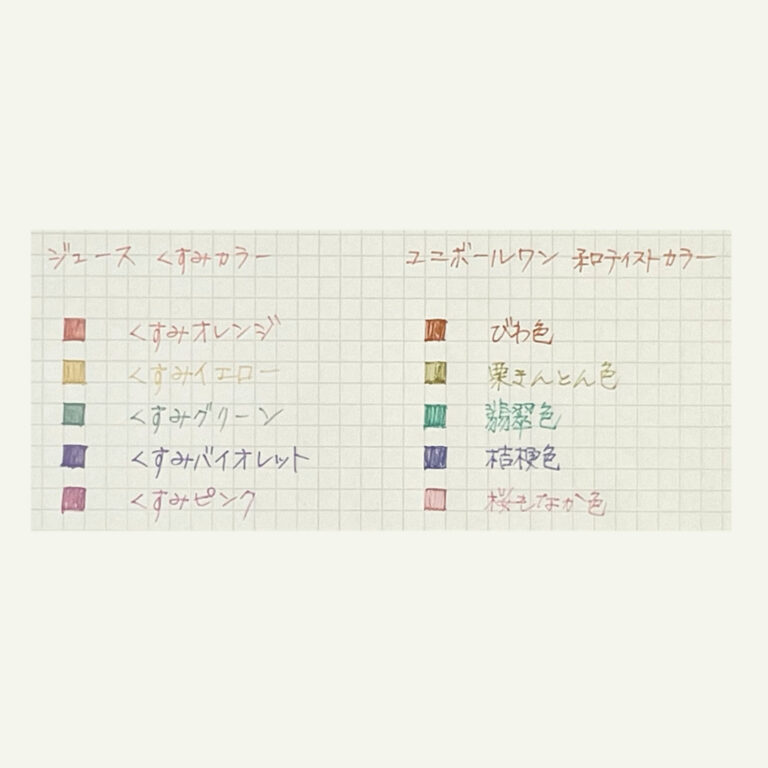 ジュース くすみカラー
くすみオレンジ
くすみイエロー
くすみグリーン
くすみバイオレット
くすみピンク
ユニボールワン 和テイストカラー
びわ色
栗きんとん色
翡翠色
桔梗色
桜もなか色